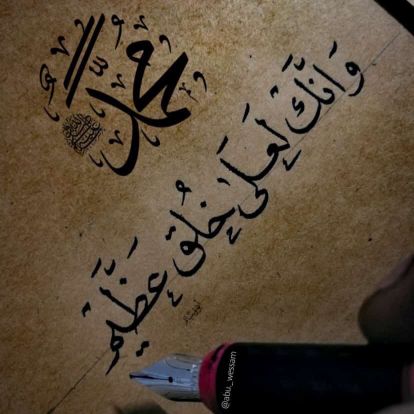 محمد
ﷺ
وَإِنَّكَ لَعَلَى خُلُقٍ عَظِيمٍ
@abu_wessam